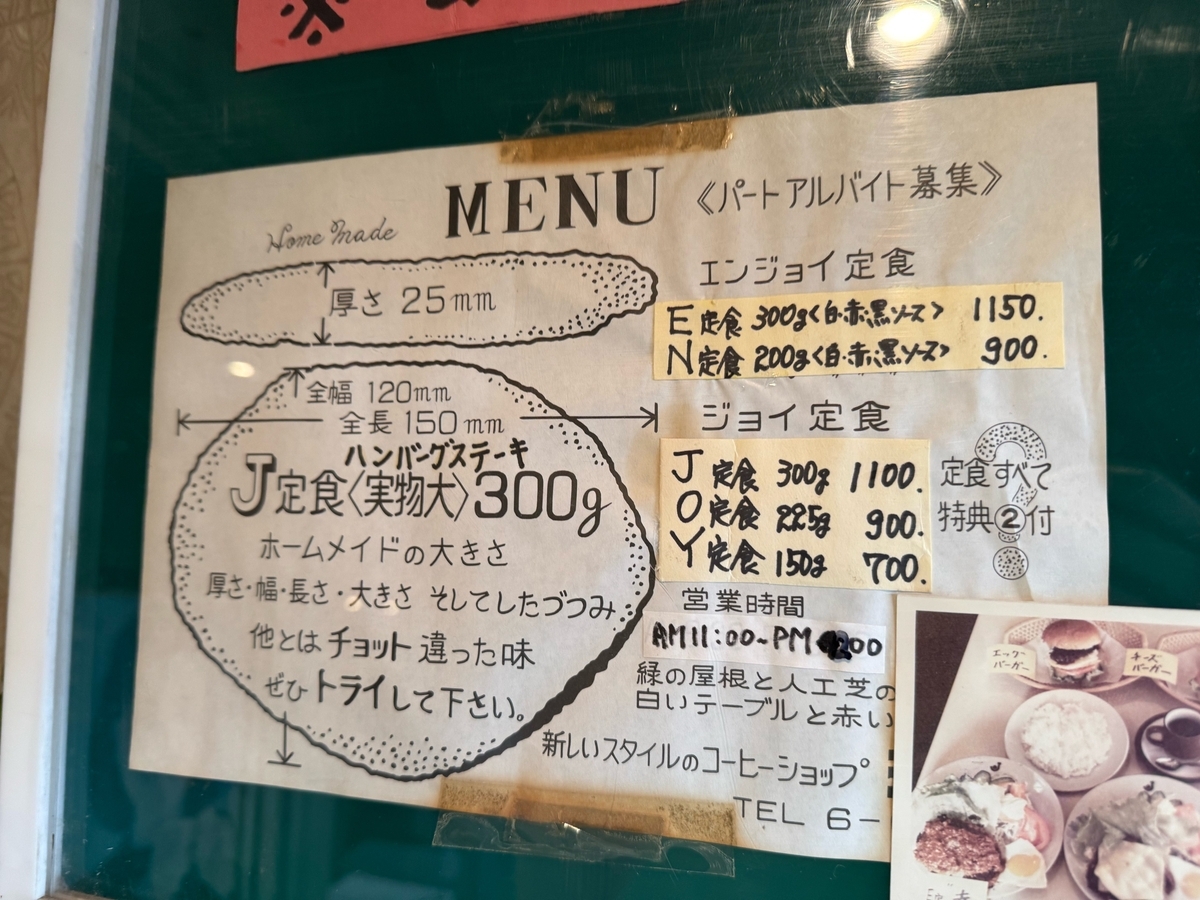 MENU
《パートアルバイト募集》
Home Made
厚さ 25mm
全幅 120mm
全長 150mm
ハンバーグステーキ
J定食〈実物大〉300g
ホームメイドの大きさ
厚さ・幅・長さ・大きさ そしてしたづつみ
他とはチョット違った味
ぜひトライして下さい。
エンジョイ定食
E定食 300g〈白・赤・黒ソース〉 1150.
N定食 200g〈白・赤・黒ソース〉 900.
ジョイ定食
J定食 300g 1100.
O定食 225g 900.
Y定食 150g 700.
定食すべて
特典②付
営業時間
AM11:00~PM 00
緑の屋根と人工芝の
白いテーブルと赤い
新しいスタイルのコーヒーショップ
TEL 6-
エッグバーガー
チーズバーガー